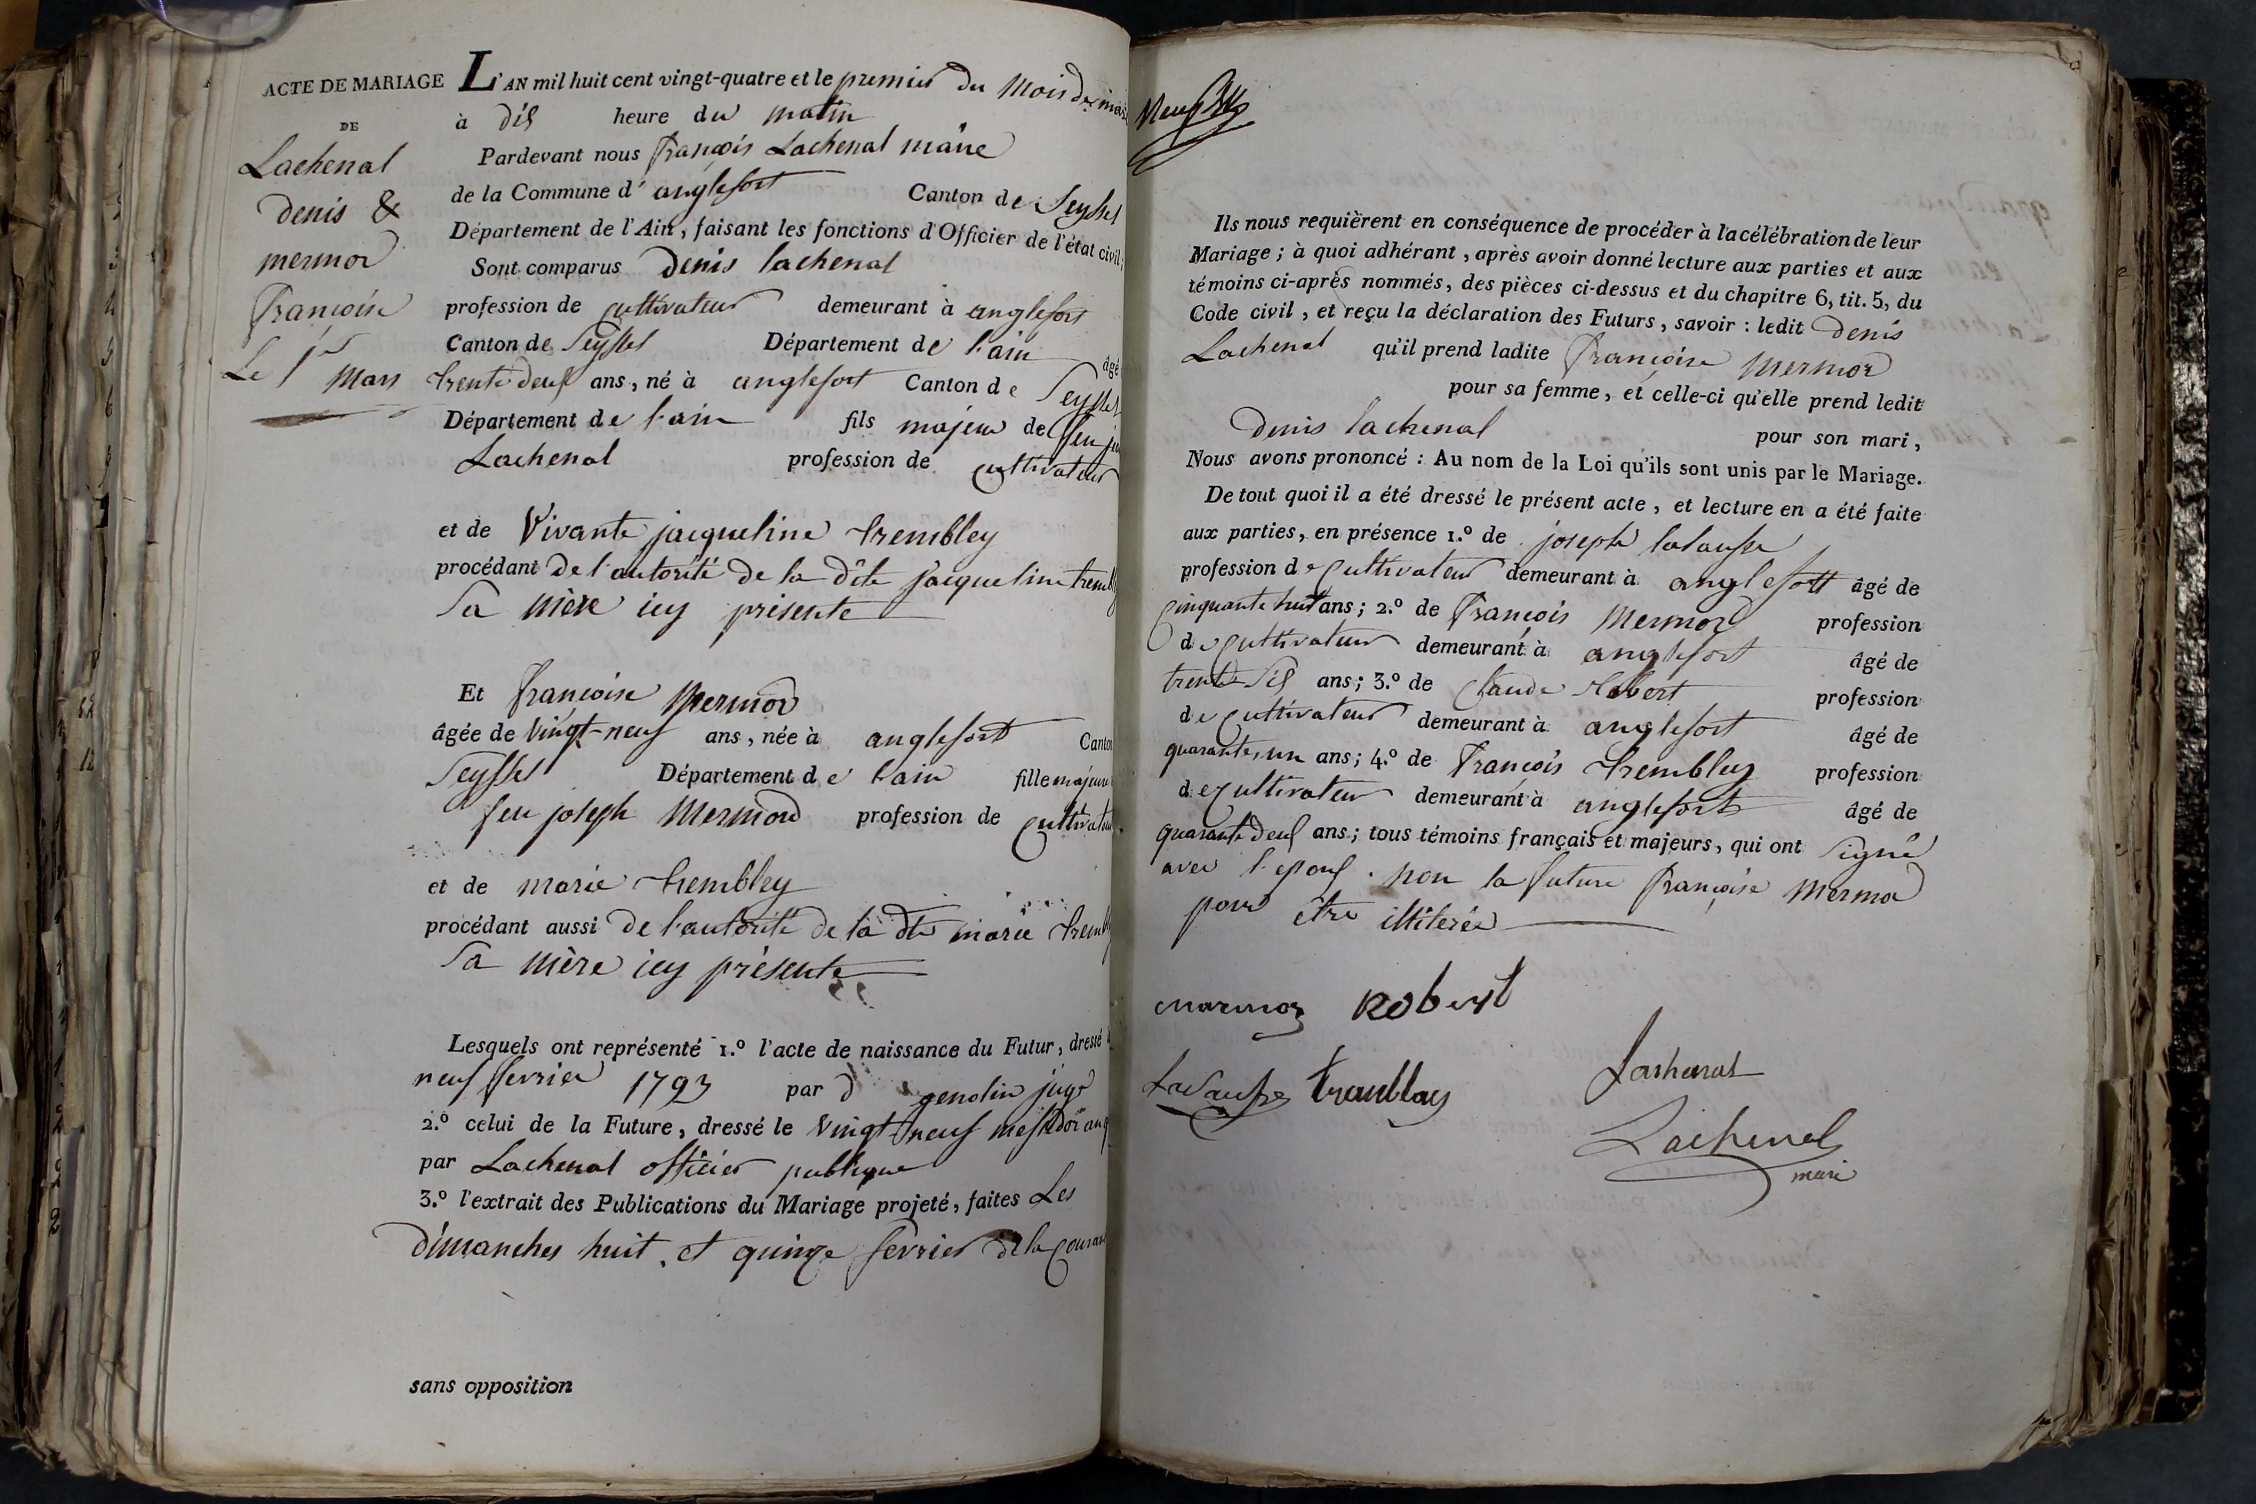 ACTE DE MARIAGE
DE
Lachenal
denis &
mermod
françoise
Le 1er Mars
L'AN mil huit cent vingt-quatre et le premier du Mois de mars
à dix heure du matin
Pardevant nous françois Lachenal maire
de la Commune d' anglefort Canton de Seyssel
Département de l'Ain, faisant les fonctions d'Officier de l'état civil;
Sont comparus Denis lachenal
profession de cultivateur demeurant à anglefort
Canton de Seyssel Département de l'ain âgé
trente deux ans, né à anglefort Canton de Seyssel
Département de l'ain fils majeur de feu
Lachenal profession de cultivateur
et de Vivante jacqueline trembley
procédant De l'autorité de la dite jacqueline trembley
Sa mère icy présente
Et françoise mermod
âgée de vingt-neuf ans, née à anglefort Canton
Seyssel Département de l'ain fille majeure
feu joseph Mermod profession de cultivateur
et de marie trembley
procédant aussi De l'autorité de la dte marie trembley
Sa mère icy présente
Lesquels ont représenté 1.º l'acte de naissance du Futur, dressé
neuf fevrier 1793 par
2.º celui de la Future, dressé le vingt-neuf messidor an
par Lachenal officier publique
3.º l'extrait des Publications du Mariage projeté, faites Les
dimanches huit, et quinze fevrier de la
sans opposition
Ils nous requièrent en conséquence de procéder à la célébration de leur
Mariage; à quoi adhérant, après avoir donné lecture aux parties et aux
témoins ci-après nommés, des pièces ci-dessus et du chapitre 6, tit. 5, du
Code civil, et reçu la déclaration des Futurs, savoir: ledit denis
Lachenal qu'il prend ladite françoise mermod
pour sa femme, et celle-ci qu'elle prend ledit
Denis lachenal pour son mari,
Nous avons prononcé: Au nom de la Loi qu'ils sont unis par le Mariage.
De tout quoi il a été dressé le présent acte, et lecture en a été faite
aux parties, en présence 1.º de joseph
profession de cultivateur demeurant à anglefort âgé de
cinquante huit ans; 2.º de françois Mermod profession
de cultivateur demeurant à anglefort âgé de
trente six ans; 3.º de Claude Robert profession
de cultivateur demeurant à anglefort âgé de
quarante, un ans; 4.º de françois trembley profession
de cultivateur demeurant à anglefort âgé de
quarante deux ans; tous témoins français et majeurs, qui ont signé
avec l'epoux. non la future françoise mermod
pour être illiterée
Robert
Lachenal
Lachenal